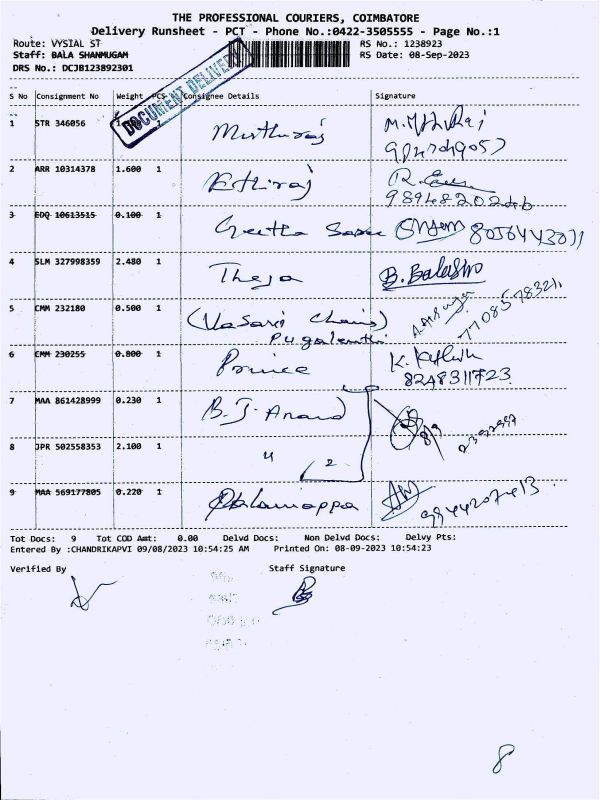 THE PROFESSIONAL COURIERS, COIMBATORE
Delivery Runsheet - PCT - Phone No.:0422-3505555 - Page No.:1
Route: VYSIAL ST RS No.: 1238923
Staff: BALA SHANMUGAM RS Date: 08-Sep-2023
DRS No.: DCJB123892301
DOCUMENT DELIVERY
S No Consignment No Weight PCS Consignee Details Signature
1 STR 346056 Muthuraj
2 ARR 10314378 1.600 1 Ethiraj
3 EDQ 10613515 0.100 1 Geetha 8056443071
4 SLM 327998359 2.480 1 Theja B. Balasho
5 CMM 232180 0.500 1 (Vasari Chains) 7708578321
Pugalenthi
6 CMM 230255 0.800 1 Prince K.
8248311723
7 MAA 861428999 0.230 1 B. J. Anand
8 JPR 502558353 2.100 1 " 2
9 MAA 569177805 0.220 1 9944207413
Tot Docs: 9 Tot COD Amt: 0.00 Delvd Docs: Non Delvd Docs: Delvy Pts:
Entered By :CHANDRIKAPVI 09/08/2023 10:54:25 AM Printed On: 08-09-2023 10:54:23
Verified By Staff Signature
8